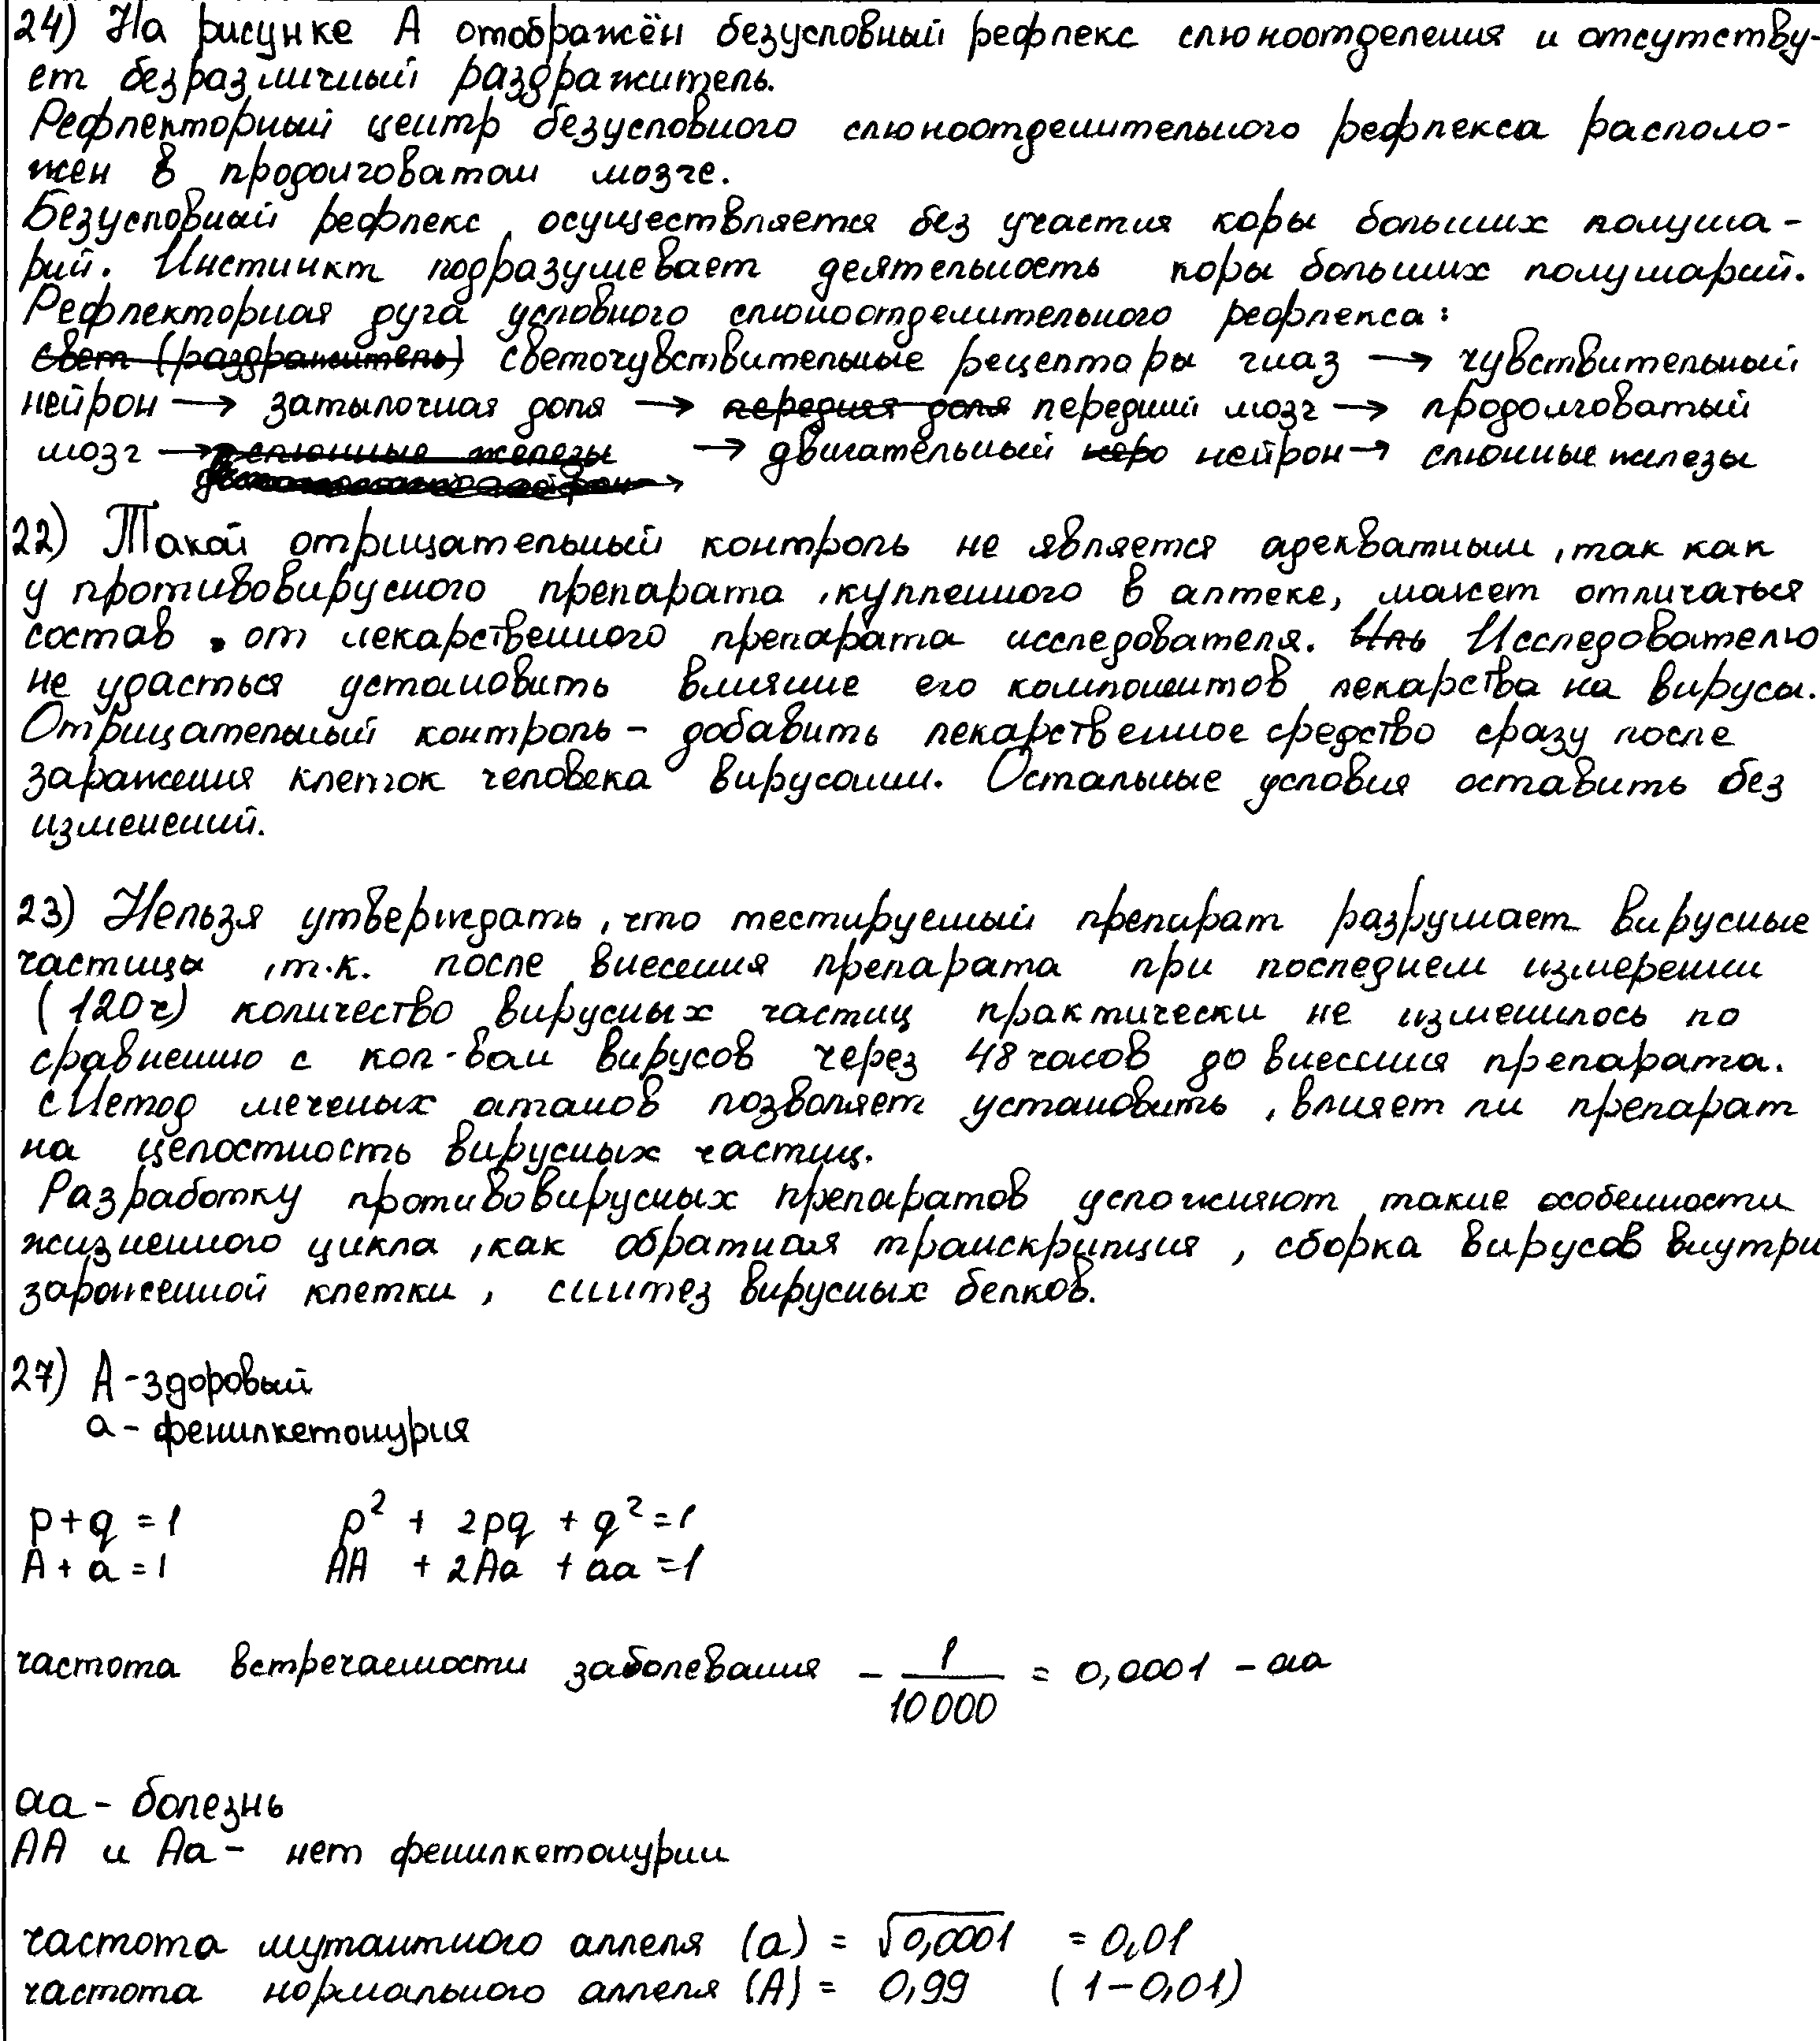 24) На рисунке А отображён безусловный рефлекс слюноотделения и отсутству-
ет безразличный раздражитель.
Рефлекторный центр безусловного слюноотделительного рефлекса располо-
жен в продолговатом мозге.
Безусловный рефлекс осуществляется без участия коры больших полуша-
рий. Инстинкт подразумевает деятельность коры больших полушарий.
Рефлекторная дуга условного слюноотделительного рефлекса:
свет (раздражитель) светочувствительные рецепторы глаз → чувствительный
нейрон → затылочная доля → передняя доля передний мозг → продолговатый
мозг → слюнные железы → двигательный неро нейрон → слюнные железы
22) Такой отрицательный контроль не является адекватным, так как
у противовирусного препарата, купленного в аптеке, может отличаться
состав от лекарственного препарата исследователя. Исследователю
не удасться установить влияние его компонентов лекарства на вирусы.
Отрицательный контроль - добавить лекарственное средство сразу после
заражения клеток человека вирусами. Остальные условия оставить без
изменений.
23) Нельзя утверждать, что тестируемый препарат разрушает вирусные
частицы, т.к. после внесения препарата при последнем измерении
(120 ч) количество вирусных частиц практически не изменилось по
сравнению с кол-вом вирусов через 48 часов до внесения препарата.
Метод меченых атомов позволяет установить, влияет ли препарат
на целостность вирусных частиц.
Разработку противовирусных препаратов усложняют такие особенности
жизненного цикла, как обратная транскрипция, сборка вирусов внутри
зараженной клетки, синтез вирусных белков.
27) А - здоровый
а - фенилкетонурия
p + q = 1 p² + 2pq + q² = 1
A + a = 1 AA + 2Aa + aa = 1
частота встречаемости заболевания - 1/10000 = 0,0001 - аа
аа - болезнь
АА и Аа - нет фенилкетонурии
частота мутантного аллеля (а) = √0,0001 = 0,01
частота нормального аллеля (А) = 0,99 (1-0,01)